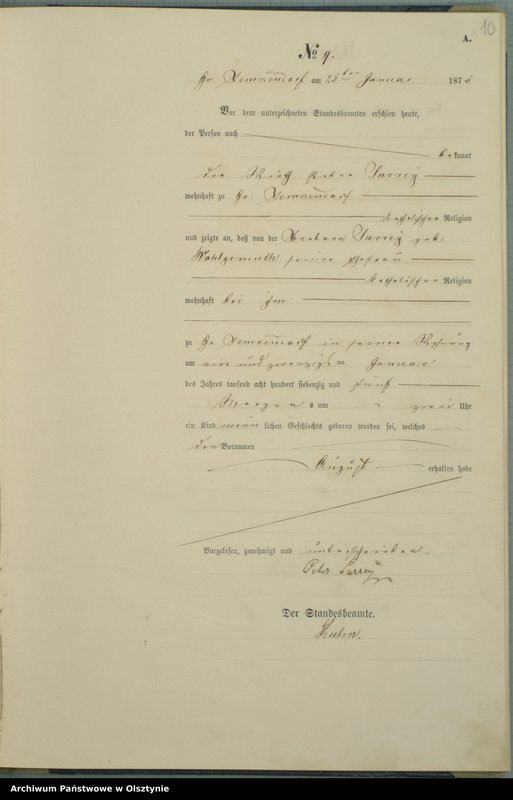 10
A.
No 9.
Gr. Lemkendorf am 25ten Januar 1875
Vor dem unterzeichneten Standesbeamten erschien heute,
der Person nach
bekannt
der Wirth Peter Surrey
wohnhaft zu Gr. Lemkendorf
katholischer Religion
und zeigte an, daß von der Barbara Surrey geb:
Wohlgemuth seiner Ehefrau
katholischer Religion
wohnhaft bei ihm
zu Gr Lemkendorf in seiner Wohnung
am ein und zwanzigsten Januar
des Jahres tausend acht hundert siebenzig und fünf
Morgens um zwei Uhr
ein Kind männlichen Geschlechts geboren worden sei, welches
den Vornamen
August erhalten habe
Vorgelesen, genehmigt und unterschrieben.
Peter Surrey
Der Standesbeamte.
Kuhn.
Archiwum Państwowe w Olsztynie